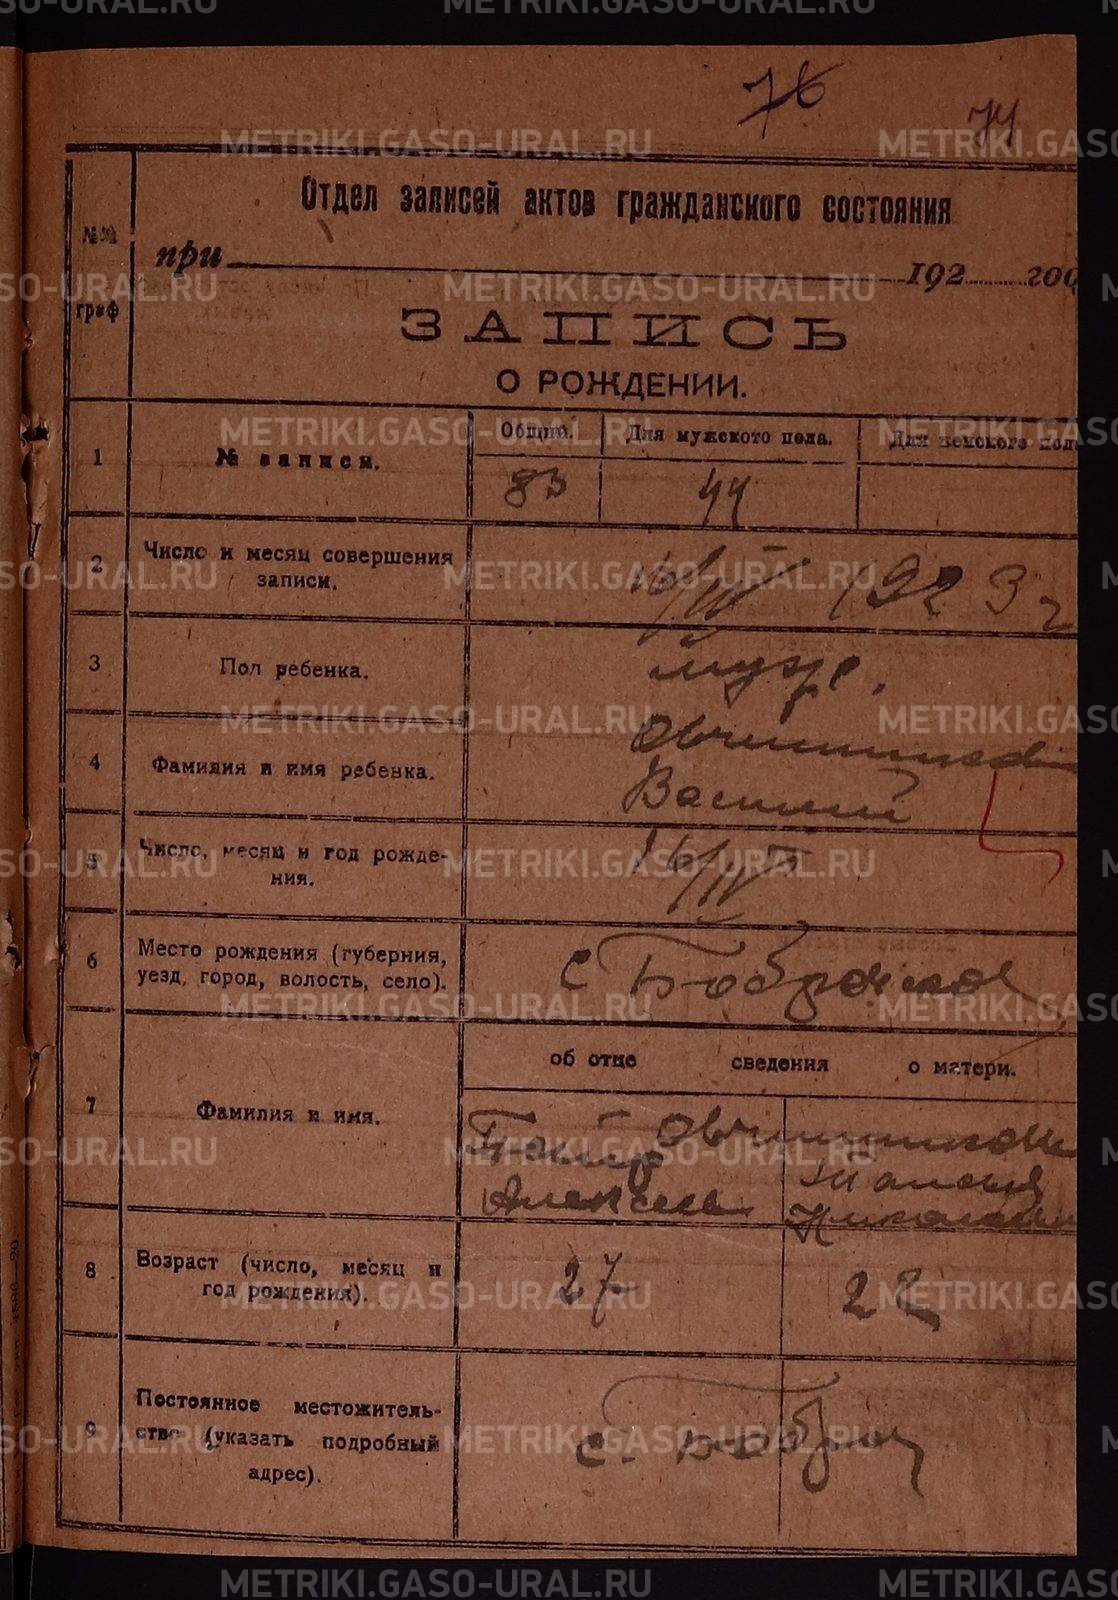 76
74
Отдел записей актов гражданского состояния
№№ граф
при 192 год
ЗАПИСЬ
О РОЖДЕНИИ.
1
№ записи.
Общий.
Для мужского пола.
Для женского пола
83
44
2
Число и месяц совершения
записи.
16/IV 1923 г
3
Пол ребенка.
муж.
4
Фамилия и имя ребенка.
Овчинников
Василий
5
Число, месяц и год рожде-
ния.
16/IV
6
Место рождения (губерния,
уезд, город, волость, село).
с Бобровское
об отце сведения о матери.
7
Фамилия и имя.
Овчинников
Алексеев
Николаевна
8
Возраст (число, месяц и
год рождения).
27
22
9
Постоянное местожитель-
ство (указать подробный
адрес).
с. Бобров
METRIKI.GASO-URAL.RU